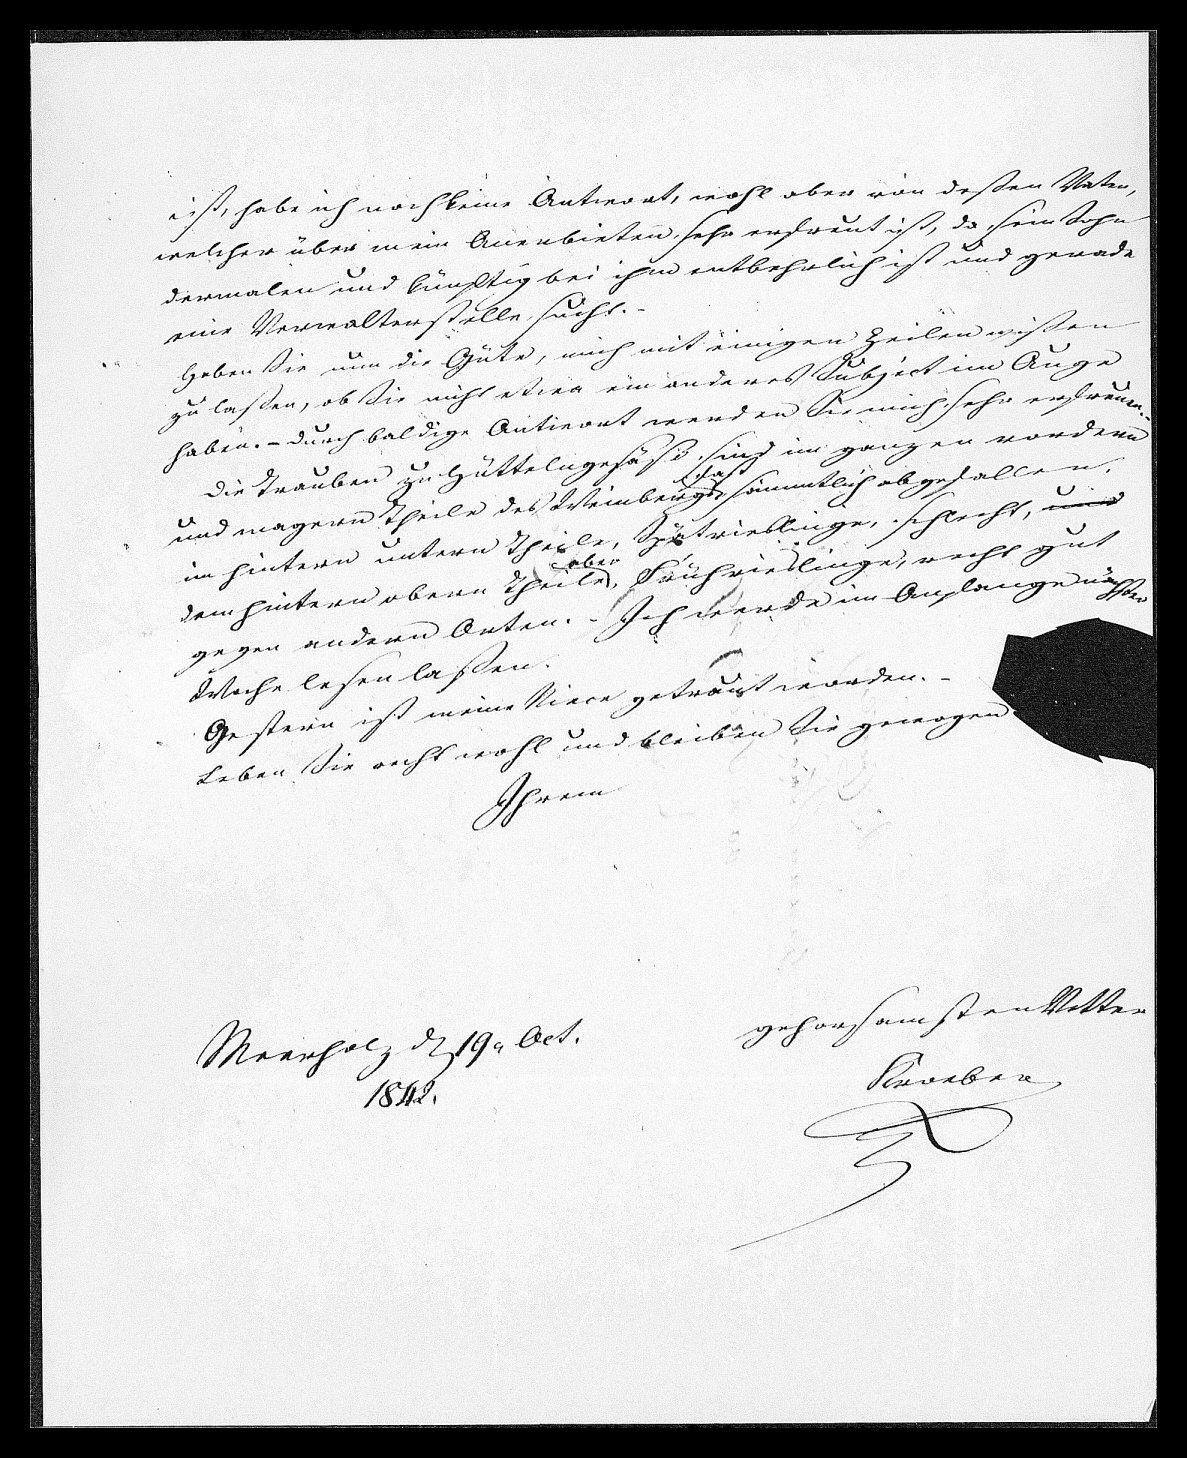 ist, habe ich noch keine Antwort, wohl aber von deßen Vater,
welcher über mein Anerbieten sehr erfreut ist, da sein Sohn
dermalen und künftig bei ihm entbehrlich ist und gerade
eine Verwalterstelle sucht. -
Haben Sie nun die Güte, mich mit einigen Zeilen wißen
zu laßen, ob Sie nicht etwa ein anderes Subject im Auge
haben. - Durch baldige Antwort werden Sie mich sehr erfreuen. -
Die Trauben zu Hüttelngesäß sind im ganzen vordern
und magern Theile des Weinbergs fast sämmtlich abgefallen,
im hintern untern Theile, Spätrießlinge, schlecht, und
dem hintern obern Theile aber, Frührießlinge, recht gut
gegen andern Orten. - Ich werde im Anfange nächster
Woche lesen laßen.
Gestern ist meine Niece getraut worden. -
Leben Sie recht wohl und bleiben Sie gewogen
Ihrem
gehorsamsten Vetter
Meerholz d. 19n Oct.
Kroeber
1842.